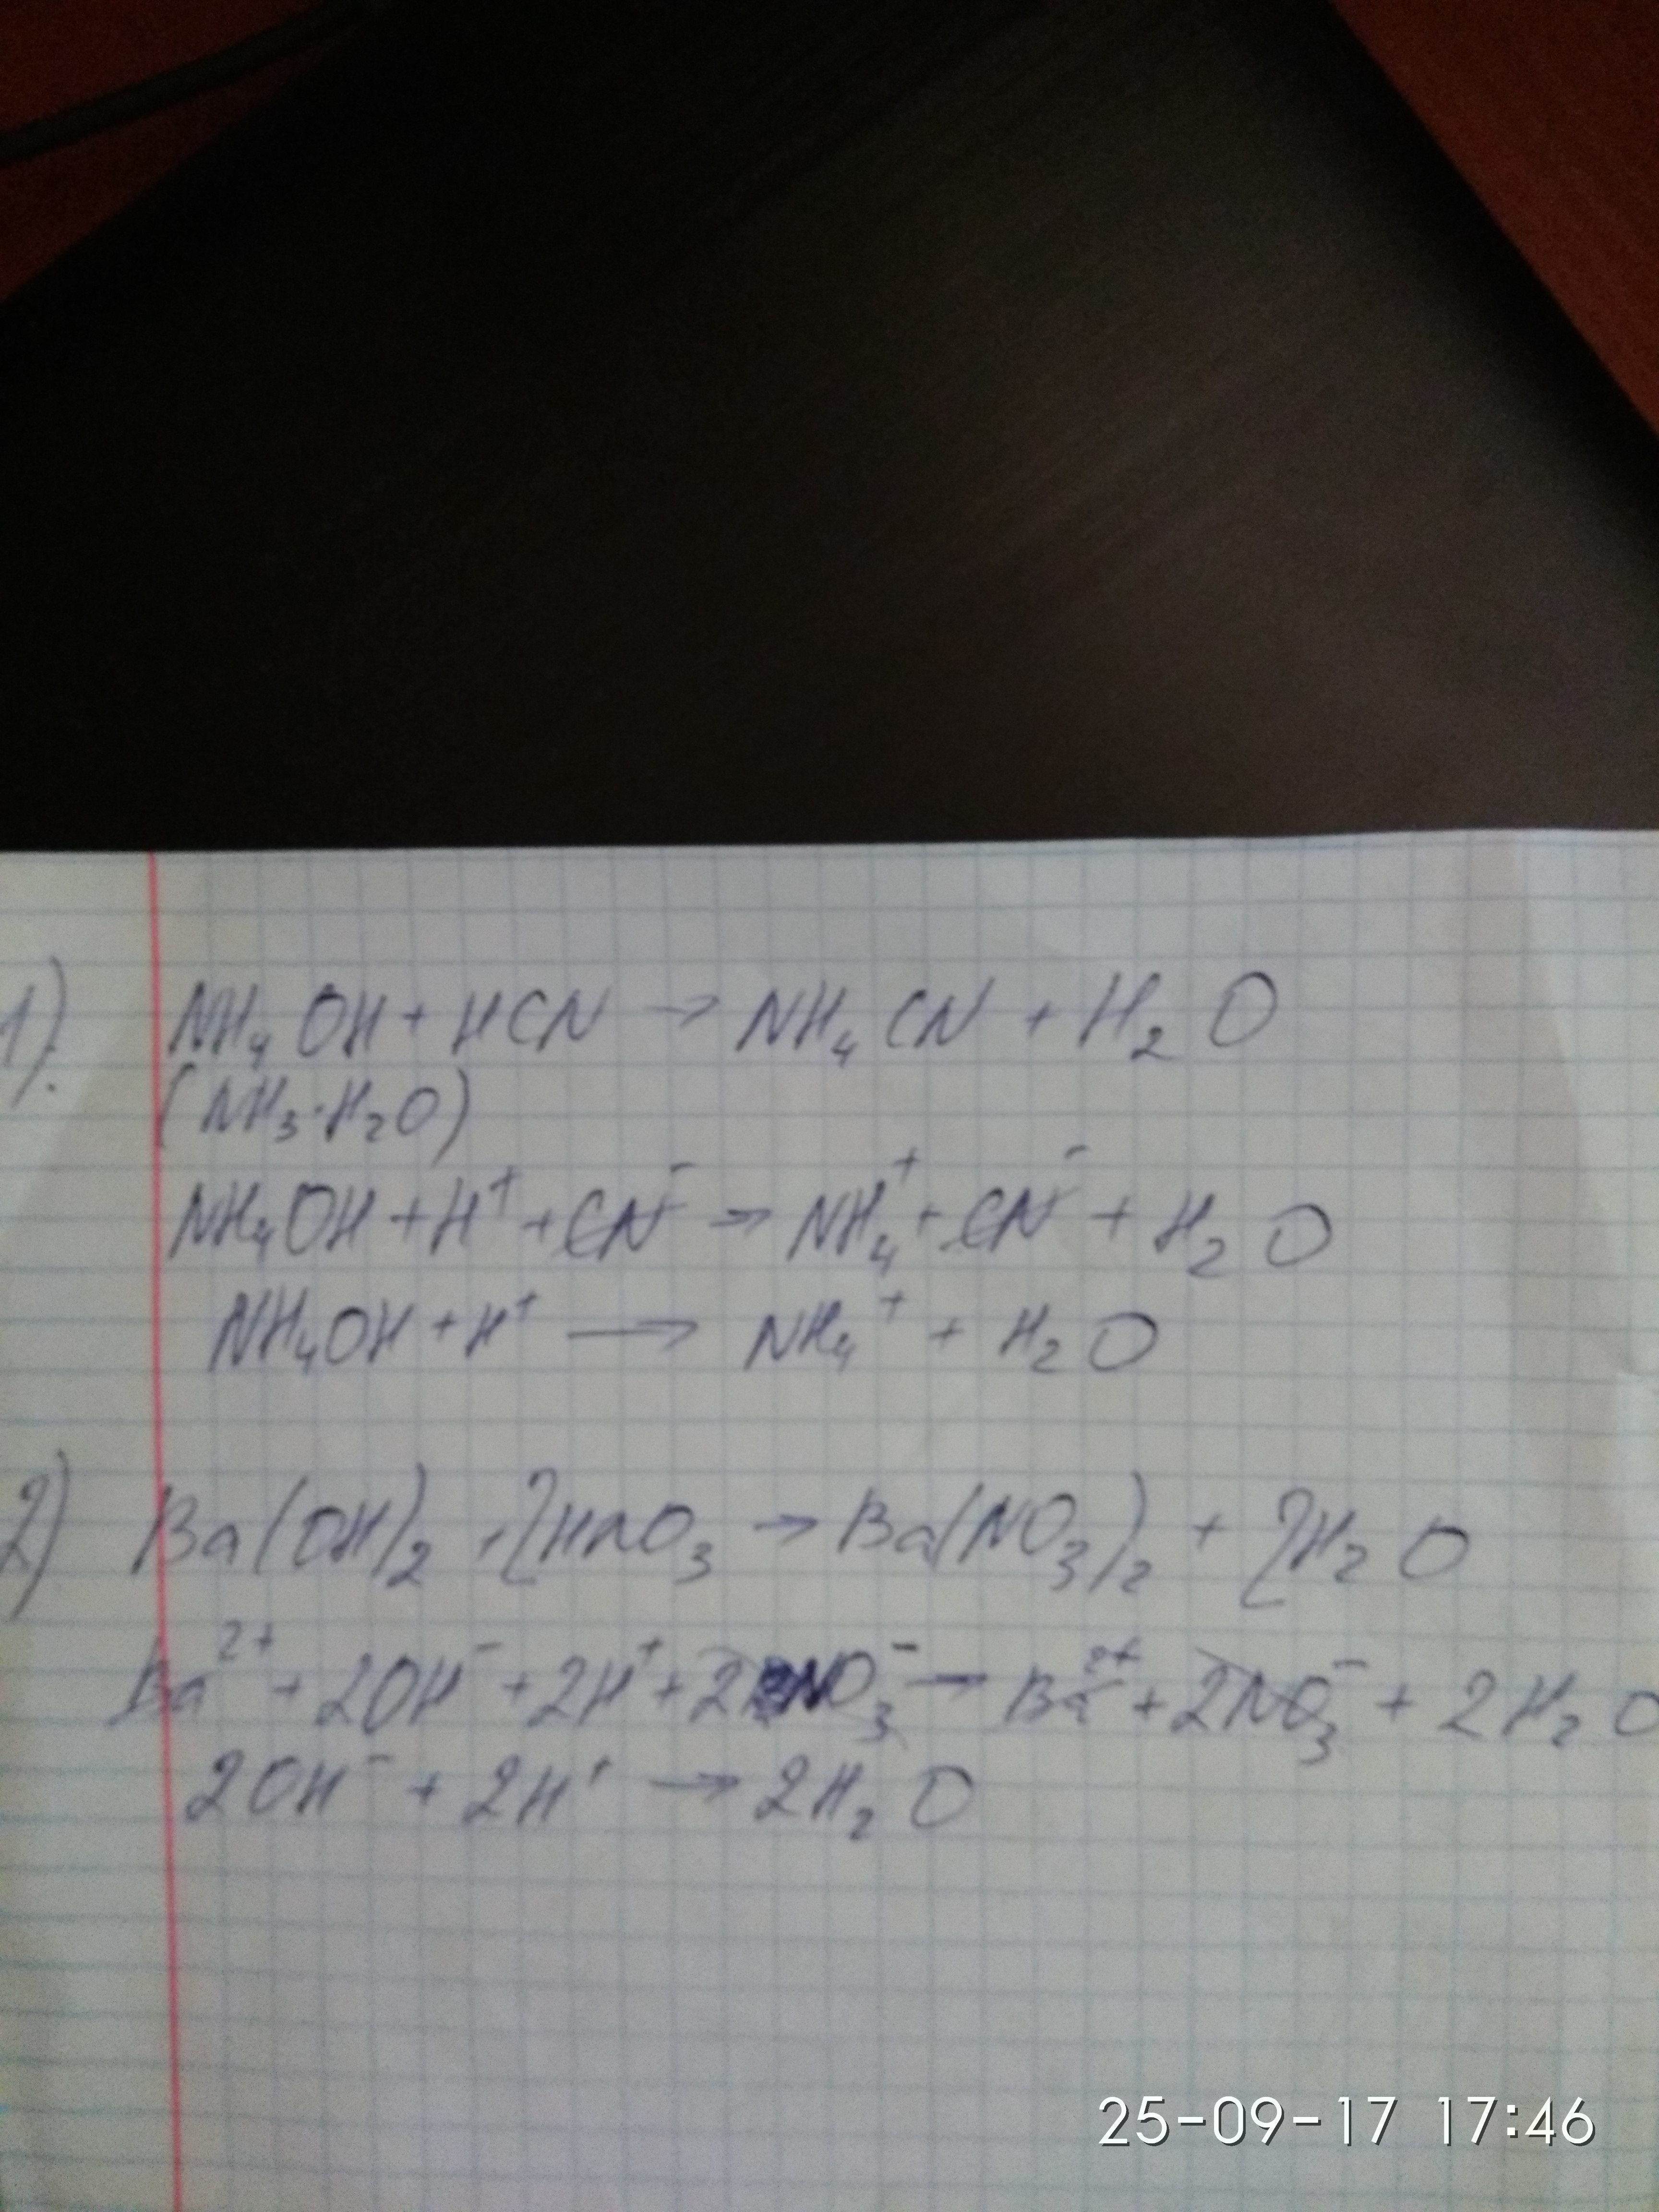 1). NH₄OH + HCN → NH₄CN + H₂O
(NH₃·H₂O)
NH₄OH + H⁺ + CN⁻ → NH₄⁺ + CN⁻ + H₂O
NH₄OH + H⁺ → NH₄⁺ + H₂O
2) Ba(OH)₂ + 2HNO₃ → Ba(NO₃)₂ + 2H₂O
Ba²⁺ + 2OH⁻ + 2H⁺ + 2NO₃⁻ → Ba²⁺ + 2NO₃⁻ + 2H₂O
2OH⁻ + 2H⁺ → 2H₂O
25-09-17 17:46